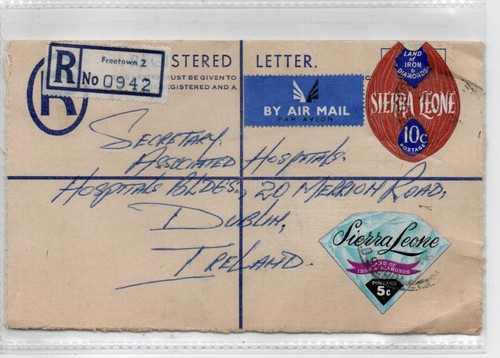 Freetown 2
R No 0942
STERED LETTER.
UST BE GIVEN TO
EGISTERED AND A
R
BY AIR MAIL
PAR AVION
LAND
of
IRON
&
DIAMONDS
SIERRA LEONE
10c
POSTAGE
Secretary.
Associated Hospitals.
Hospitals Bldgs., 20 Merrion Road,
Dublin,
Ireland.
Sierra Leone
LAND OF
IRON & DIAMONDS
POSTAGE
5c